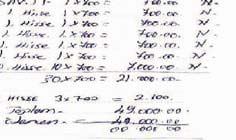 1 x 700 = 700.00 N-
1. Hisse 1 x 700 = 700.00. N-
1. Hisse 1 x 700 = 700.00. N-
1. Hisse 1 x 700 = 700.00. N.
1. Hisse 1 x 700 = 700.00. N.
Hisse 10 x 700 = 7.000.00 N.
30 x 700 = 21.000.00
HISSE 3 x 700 = 2.100.
Toplam. 49.000.00.
49.000.00
00 000 00